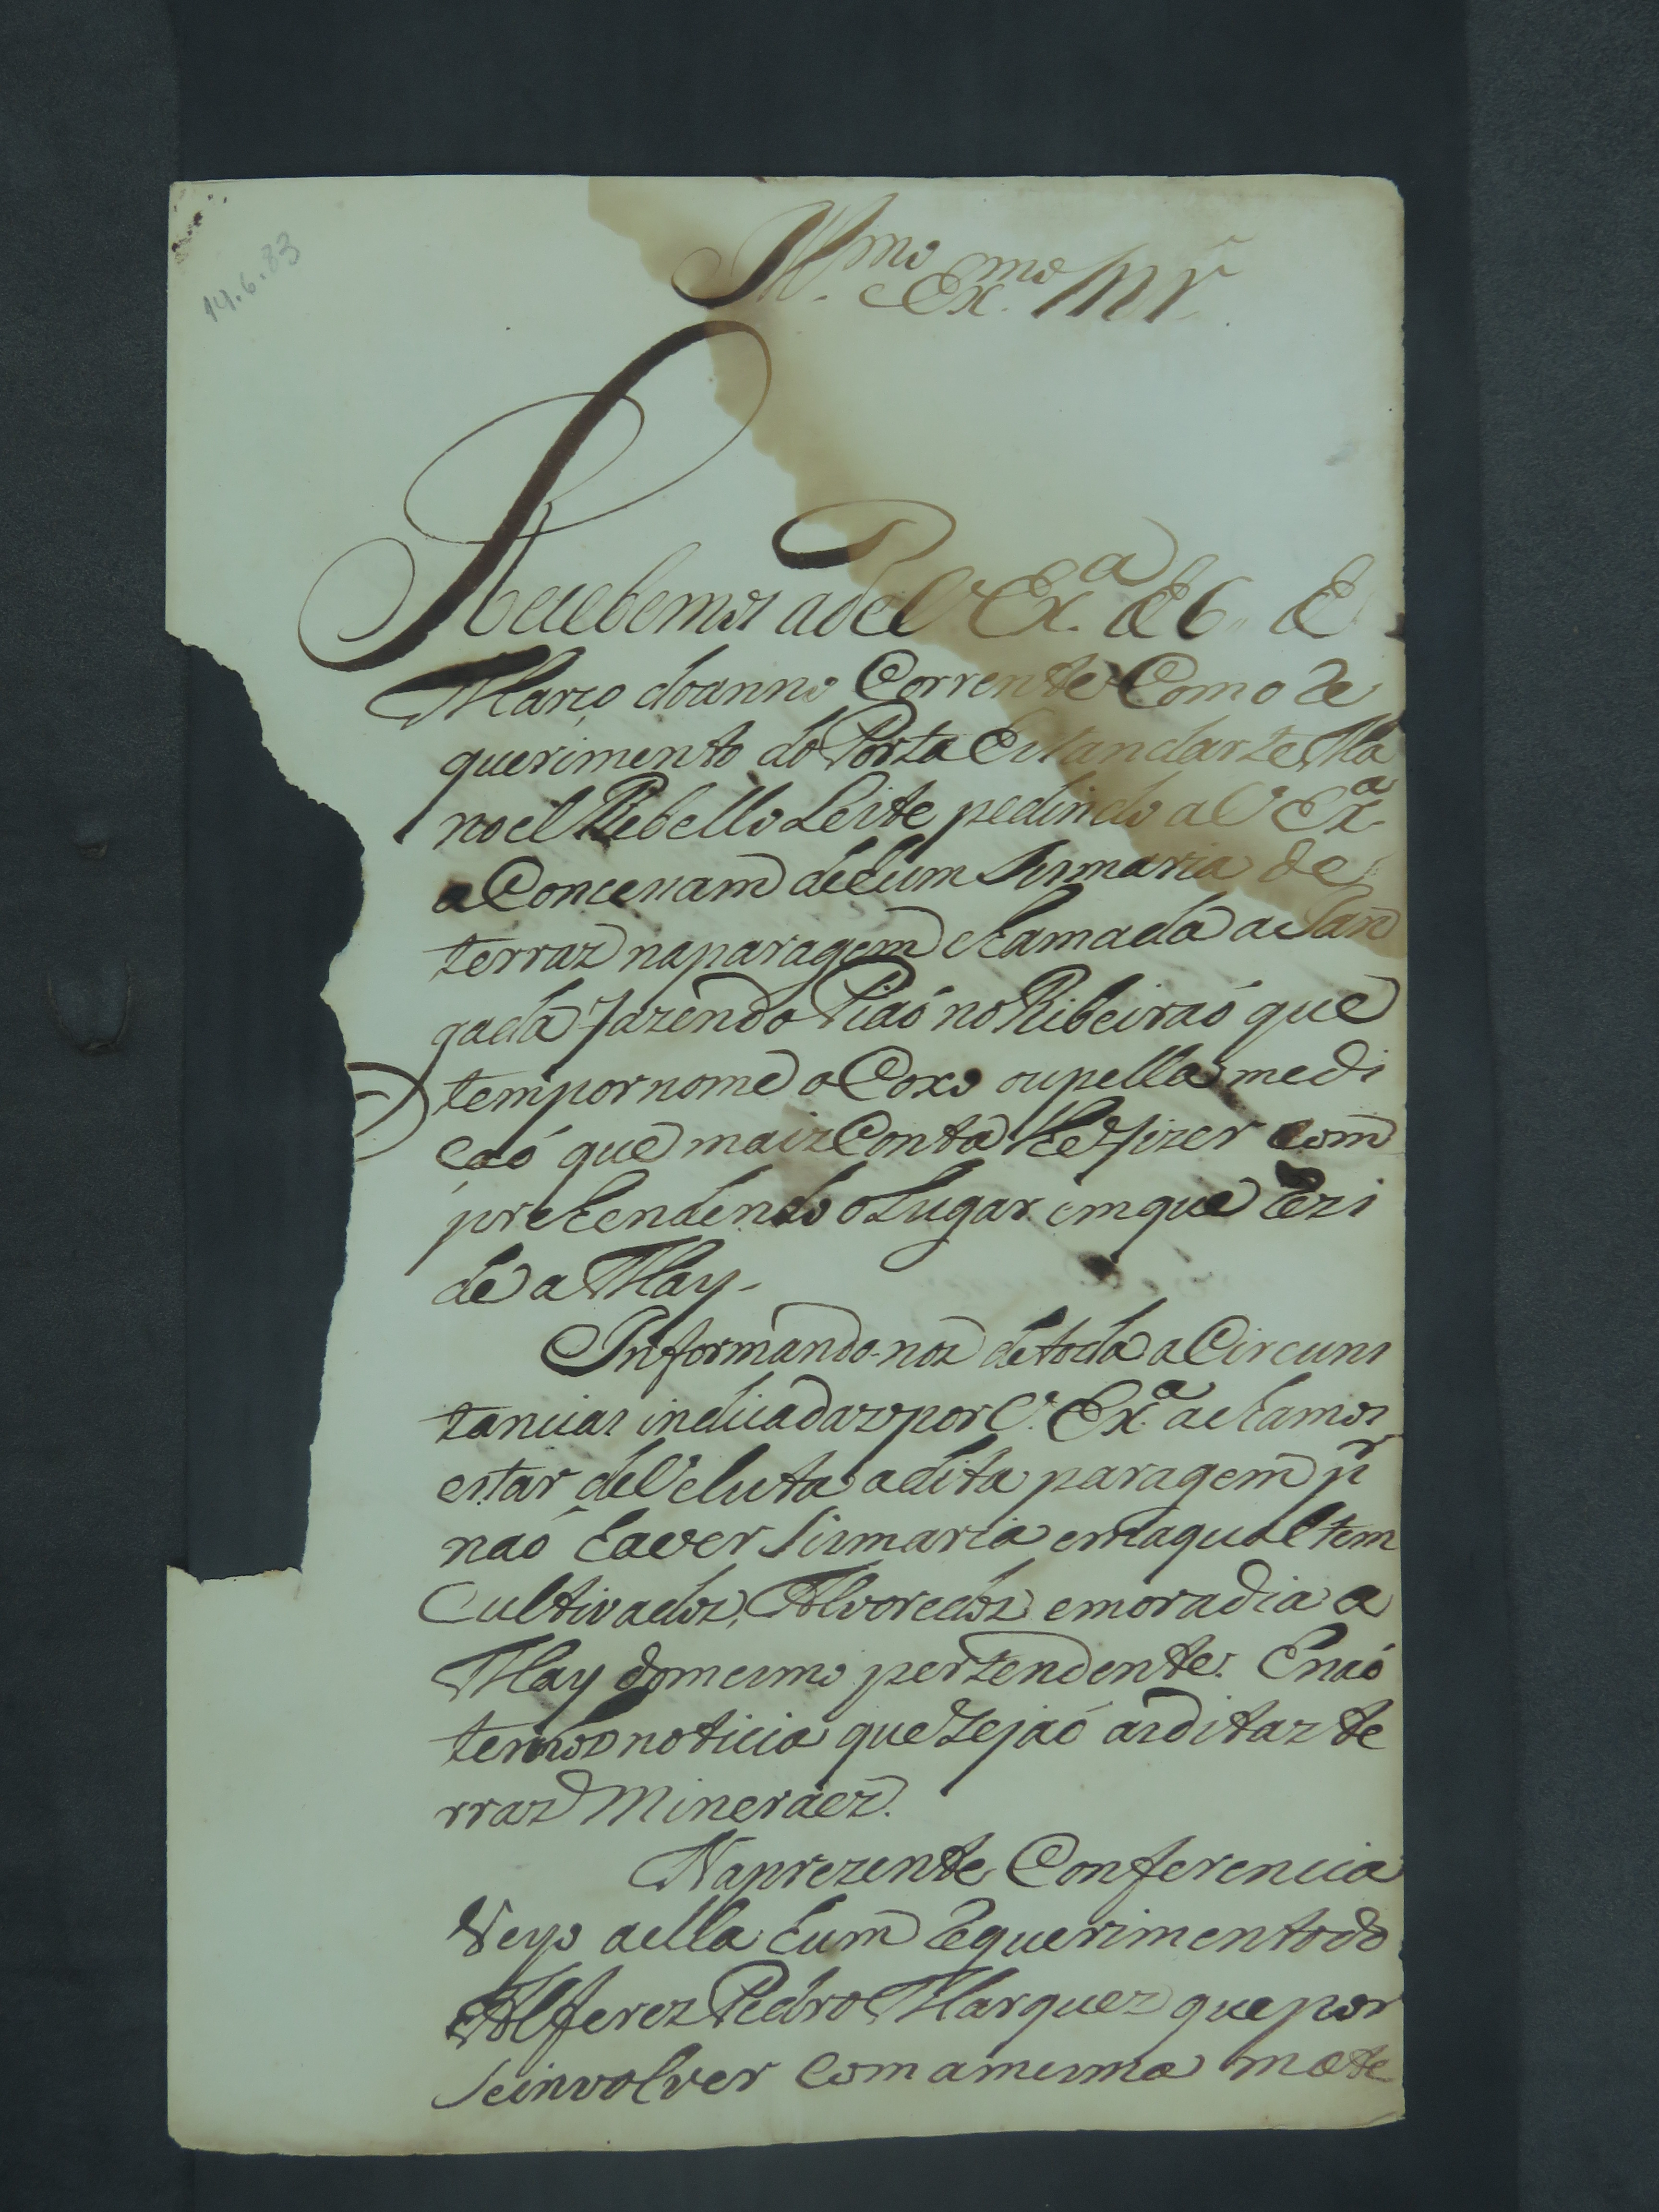 14.6.83
Ill.mo Ex.mo Snr.
Recebemos a de V. Ex.a de 6 de
Março do anno Corrente Com o Re
querimento do Porta Estandarte Ma
noel Rebello Leite pedindo a V. Ex.a
a Concenam de hum Sismaria de
terraz na paragem chamada a Jan
gada fazendo Piaó no Ribeiraó que
tem por nome o Coxo ou pella medi
caó que maiz Conta lhe fizer com
prehendendo o Lugar em que Rezi
de a May.
Informando-nos de toda a Circuns
tancias indicadaz por V. Ex.a achamos
estar deVeluta a dita paragem pr
naó haver Sismaria em a qual tem
Cultivados, Alvoredos e moradia a
May do mesmo pertendente. E naó
temos noticia que Sejaó as ditaz te
rraz Mineráez.
Na prezente Conferencia
Veyo a ella hum Requerimento do
Alferez Pedro Marquez que por
Se involver Com a mesma mate